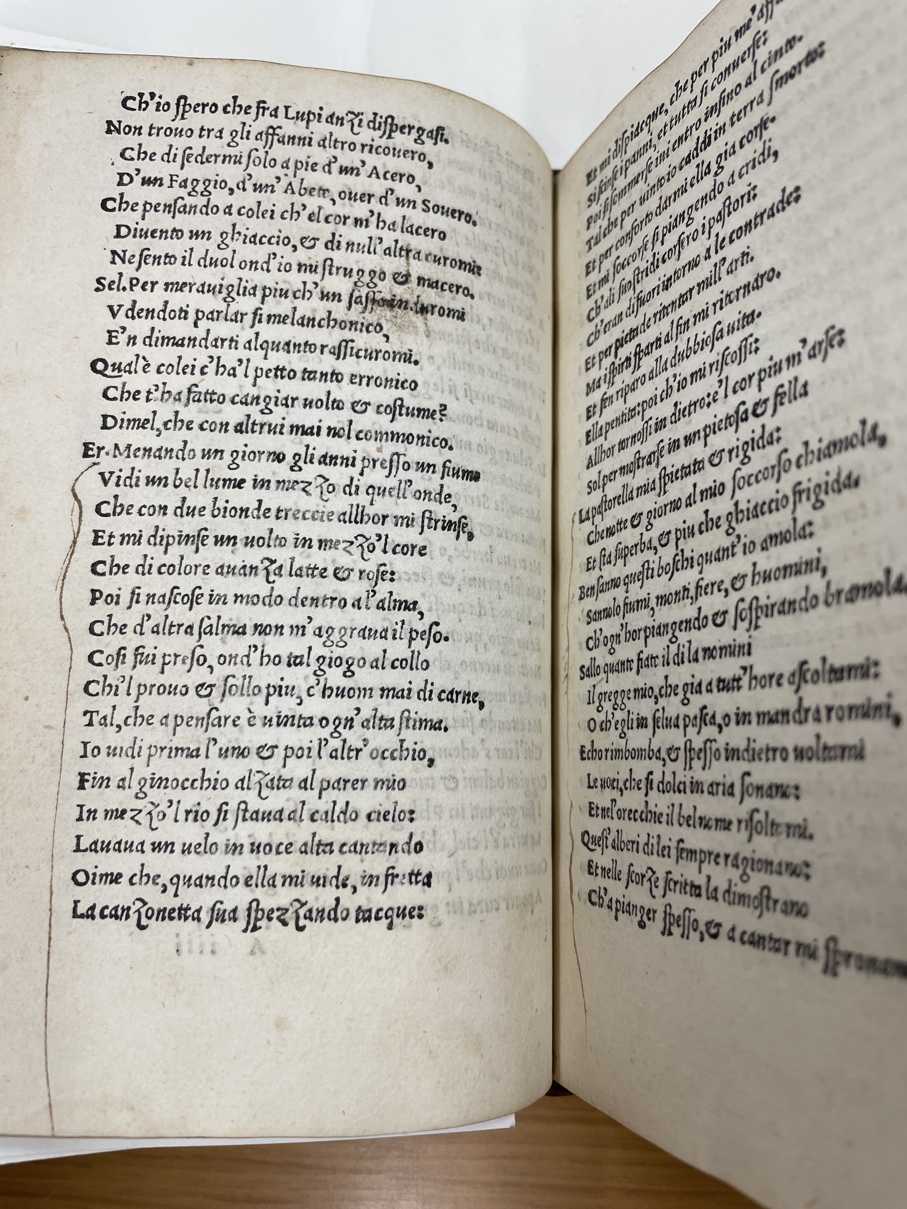 Ch'io ſpero che fra Lupi anzi diſpergaſi.
Non trouo tra gli affanni altro ricouero,
Che di ſedermi ſolo a pie d'un'Acero,
D'un Faggio, d'un'Abete, ouer d'un Souero.
Che penſando a colei ch'el cor m'ha lacero
Diuento un ghiaccio, & di null'altra curomi:
Ne ſento il duol ond'io mi ſtruggo & macero.
Sel. Per merauiglia piu ch'un ſaſſo induromi
Vdendoti parlar ſi melanchonico,
E'n dimandarti alquanto raſſicuromi.
Qual è colei c'ha'l petto tanto erronico
Che t'ha fatto cangiar uolto & coſtume?
Dimel, che con altrui mai nol commonico.
Er. Menando un giorno gli anni preſſo un fiume
Vidi un bel lume in mezzo di quell'onde,
Che con due bionde treccie allhor mi ſtrinſe,
Et mi dipinſe un uolto in mezzo'l core
Che di colore auanza latte & roſe:
Poi ſi naſcoſe in modo dentro al'alma,
Che d'altra ſalma non m'aggraua il peſo.
Coſi fui preſo, ond'ho tal giogo al collo
Chi'l prouo & ſollo piu, c'huom mai di carne,
Tal, che a penſare è uinta ogn'alta ſtima.
Io uidi prima l'uno & poi l'altr'occhio,
Fin al ginocchio alzata al parer mio
In mezzo'l rio ſi ſtaua al caldo cielo:
Lauaua un uelo in uoce alta cantando
Oime che, quando ella mi uide, in fretta
La canzonetta ſua ſpezzando tacque:
Et mi diſpiacque, che per piu me'
Si ſcinſe i panni, et tutta ſi conuerſe:
Poi ſi ſommerſe iui entro inſino al cinto.
Tal che per uinto io caddi in terra ſmorto:
Et per conforto darmi ella gia corſe.
Et mi ſoccorſe ſi piangendo a cridi,
Ch'ali ſuo ſtridi corſero i paſtori:
Ch'eran di fuori intorno a le contrade:
Et per pietade ritentar mill'arti.
Ma i ſpirti ſparti al fin mi ritornaro.
Et fen riparo alla dubbioſa uita.
Ella pentita: poi ch'io mi riſcoſſi:
Allhor tornoſſi in dietro: e'l cor piu m'arſe:
Sol per moſtrarſe in un pietoſa & fella
La paſtorella mia ſpietata & rigida:
Che notte & giorno al mio ſoccorſo chiamola,
Et ſta ſuperba, & piu che ghiaccio frigida.
Ben ſanno queſti boſchi quant'io amola:
Sannolo fiumi, monti, fiere, & huomini,
Ch'ogn'hor piangendo & ſoſpirando bramola.
Sallo quante fiate il di la nomini
Il gregge mio, che gia a tutt'hore aſcoltami:
O ch'egli in ſelua paſca, o in mandra romini,
Echo rimbomba, & ſpeſſo indietro uoltami
Le uoci, che ſi dolci in aria ſonano:
Et nel'orecchie il bel nome riſoltami.
Queſt'alberi di lei ſempre ragionano:
Et nelle ſcorze ſcritta la dimoſtrano
Ch'a pianger ſpeſſo, & a cantar mi